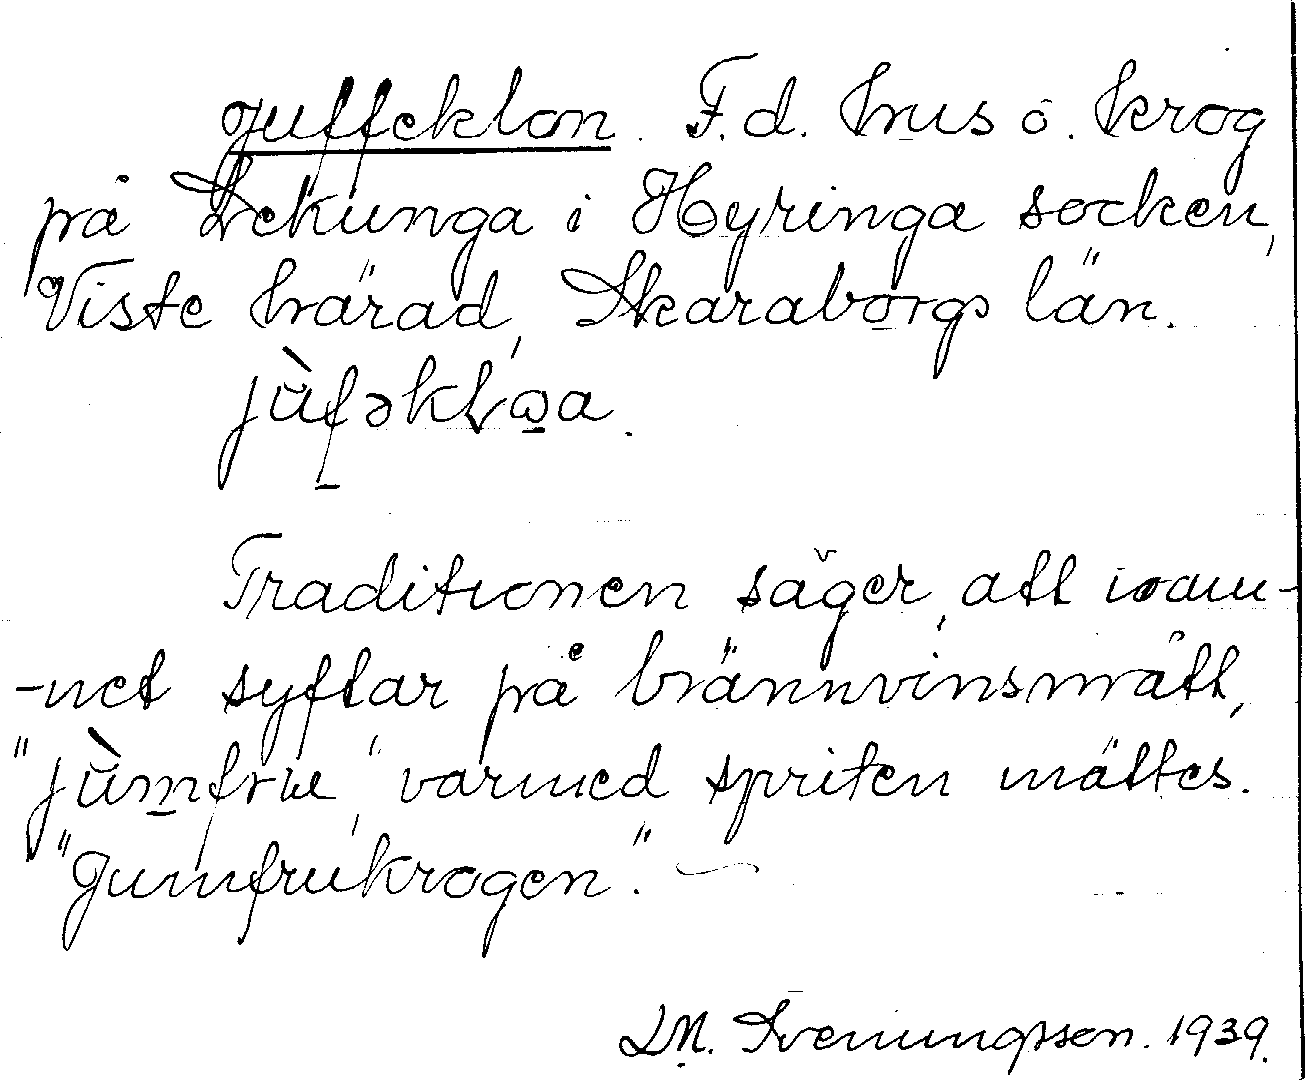 Juffeklon. F.d. hus o. krog
på Lekunga i Hyringa socken,
Viste härad, Skaraborgs län.
Traditionen säger, att nam-
-net syftar på brännvinsmått,
"jùmfru", varmed spriten mättes.
"Jumfrukrogen".
L.M. Svenungsson. 1939.